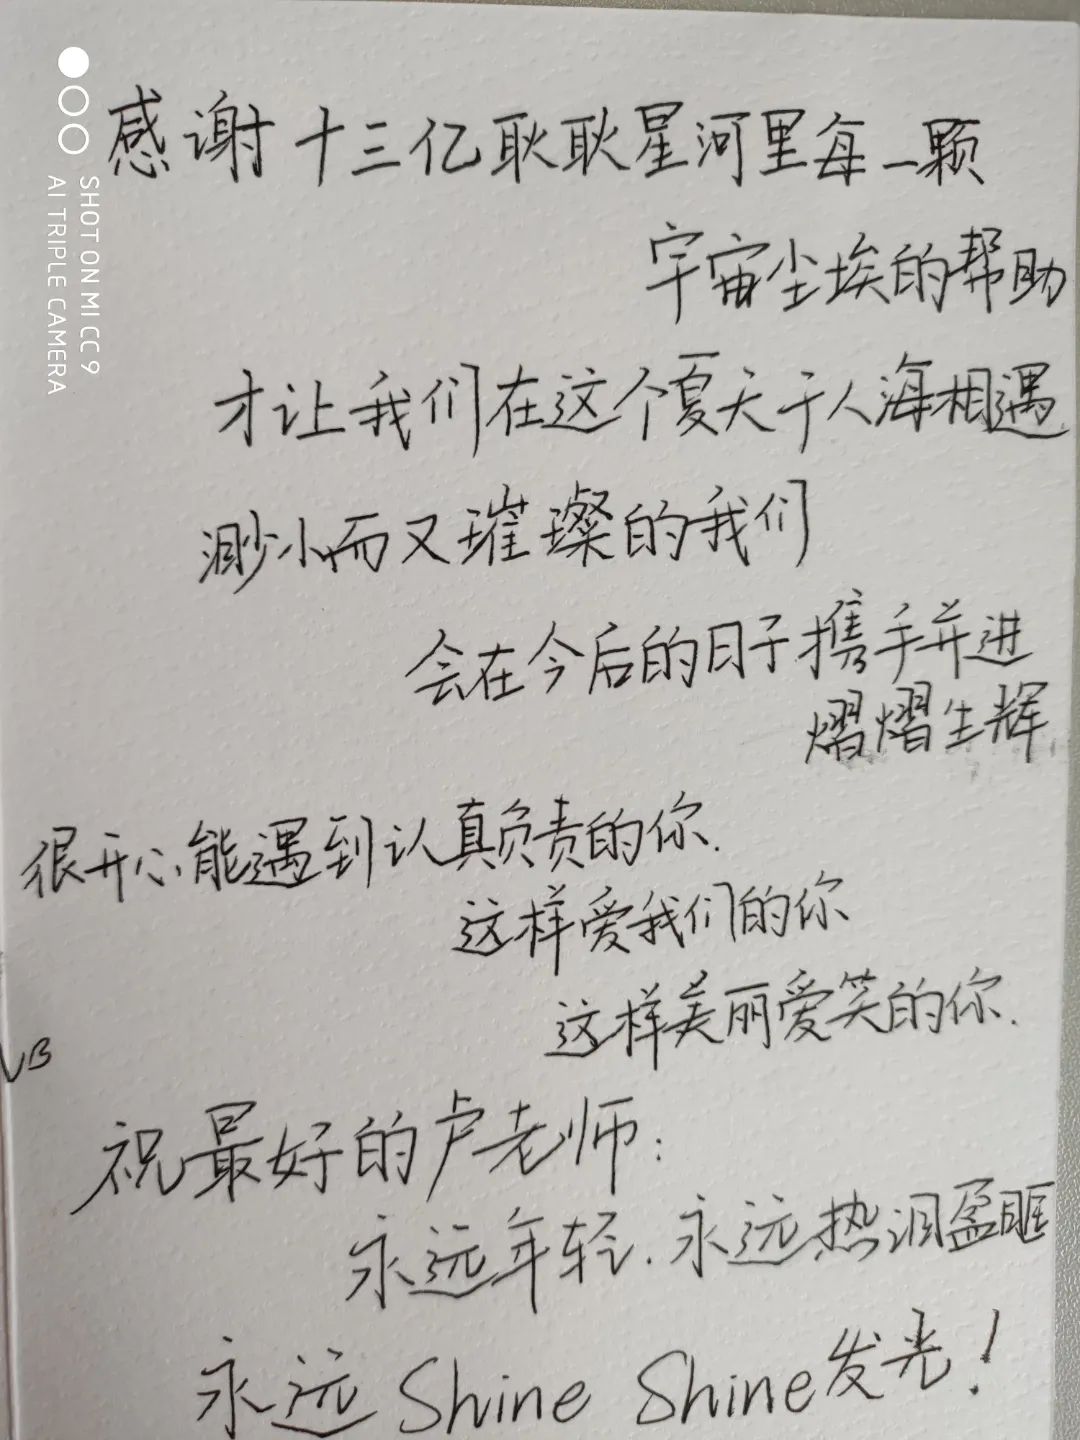 SHOT ON MI CC9
AI TRIPLE CAMERA
感谢十三亿耿耿星河里每一颗
宇宙尘埃的帮助
才让我们在这个夏天于人海相遇
渺小而又璀璨的我们
会在今后的日子携手并进
熠熠生辉
很开心能遇到认真负责的你.
这样爱我们的你
这样美丽爱笑的你.
祝最好的卢老师:
永远年轻.永远热泪盈眶
永远 Shine Shine发光!